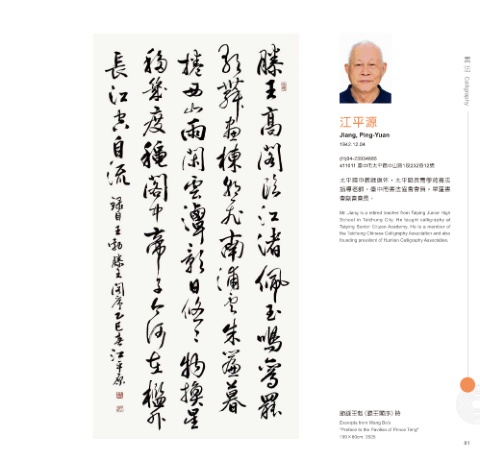 滕王高閣臨江渚佩玉鳴鸞罷
歌舞畫棟朝飛南浦雲朱簾暮
捲西山雨閑雲潭影日悠悠物換星
移幾度穐閣中帝子今何在檻外
長江空自流 錄自王勃滕王閣序乙巳春江平源
書法 Calligraphy
江平源
Jiang, Ping-Yuan
1942.12.04
太平國中教師退休，太平區長青學苑書法
指導老師，臺中市書法協會會員，
會創會會長。
Mr. Jiang is a retired teacher from Taiping Junior High
School in Taichung City. He taught calligraphy at
Taiping Senior Citizen Academy. He is a member of
the Taichung Chinese Calligraphy Association and also
founding president of Calligraphy Association.
節錄王勃《滕王閣序》詩
Excerpts from Wang Bo's
"Preface to the Pavilion of Prince Teng"
2025